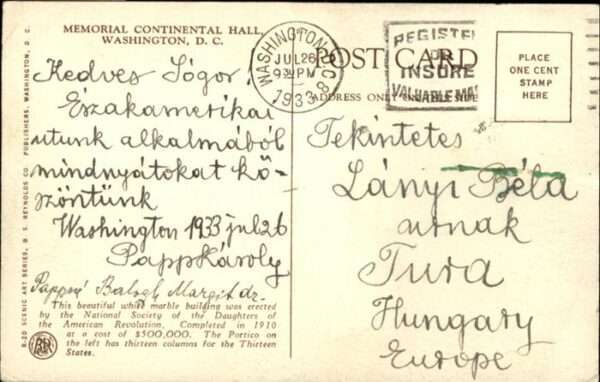 MEMORIAL CONTINENTAL HALL,
WASHINGTON, D. C.
Kedves Sógor!
Északamerikai
utunk alkalmából
mindnyátokat kö-
szöntünk
Washington 1933 jul 26
PappKároly
Pappné Balogh Margit dr.
This beautiful white marble building was erected
by the National Society of the Daughters of
the American Revolution. Completed in 1910
at a cost of $500,000. The Portico on
the left has thirteen columns for the Thirteen
States.
B-20 SCENIC ART SERIES, B. S. REYNOLDS CO. PUBLISHERS, WASHINGTON, D. C.
WASHINGTON, D.C.
JUL 26
9 PM
1933
REGISTER
OR
INSURE
VALUABLE MAIL
POST CARD
ADDRESS ONLY
PLACE
ONE CENT
STAMP
HERE
Tekintetes
Lányi Béla
urnak
Tura
Hungary
Europe